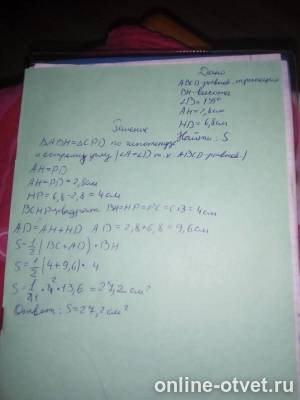 Дано
ABCD-равноб. трапеция
BH-высота
∠B=135°
AH=2,8см
HD=6,8см
Найти: S
Решение
△ABH=△CPD по гипотенузе
и острому углу (∠A=∠D т.к ABCD-равноб.)
AH=PD
AH=PD=2,8см
HP=6,8-2,8=4см
BCHP-квадрат BH=HP=PC=CB=4см
AD=AH+HD AD=2,8+6,8=9,6см
S=1/2(BC+AD)·BH
S=1/2(4+9,6)·4
S=1/2·4·13,6=27,2см²
Ответ: S=27,2см²
online-otvet.ru